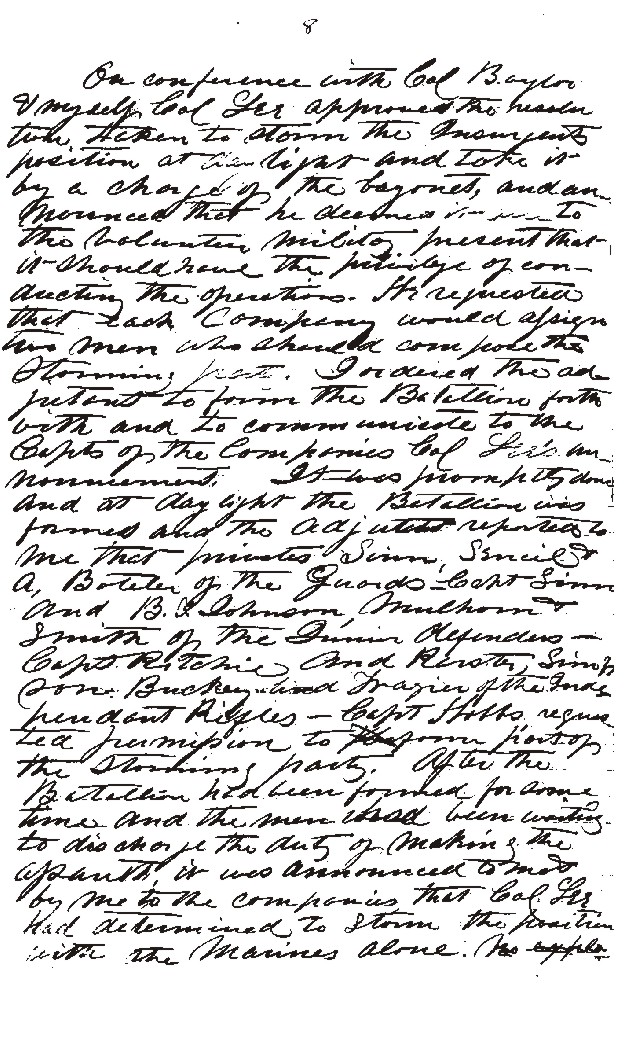 8
On conference with Col Baylor
& myself Col Lee approved the resolu
tion taken to storm the Insurgents
position at day light and take it
by a charge of the bayonet, and an
nounced that he deemed it due to
the volunteer military present that
it should have the privilege of con-
ducting the operations. He requested
that each Company would assign
two men who should compose the
Storming party. I ordered the ad
jutant to form the Batallion forth
with and to communicate to the
Capts of the Companies Col Lee's an
nouncement. It was promptly done
and at daylight the Batallion was
formed and the adjutant reported to
me that privates Sinn, Sencil &
A, Boteler of the Guards - Capt Sinn
And B. T. Johnson, Mulhorn &
Smith of the Junior defenders -
Capt Ritchie, and Kerster, Simp
son Buckey and Frazier of the Inde
pendant Rifles - Capt Hobbs, reques
ted permission to form part of
the storming party. After the
Batallion had been formed for some
time and the men had been waiting
to discharge the duty of making the
assault, it was announced to me &
by me to the companies that Col. Lee
had determined to storm the position
with the Marines alone. No expla